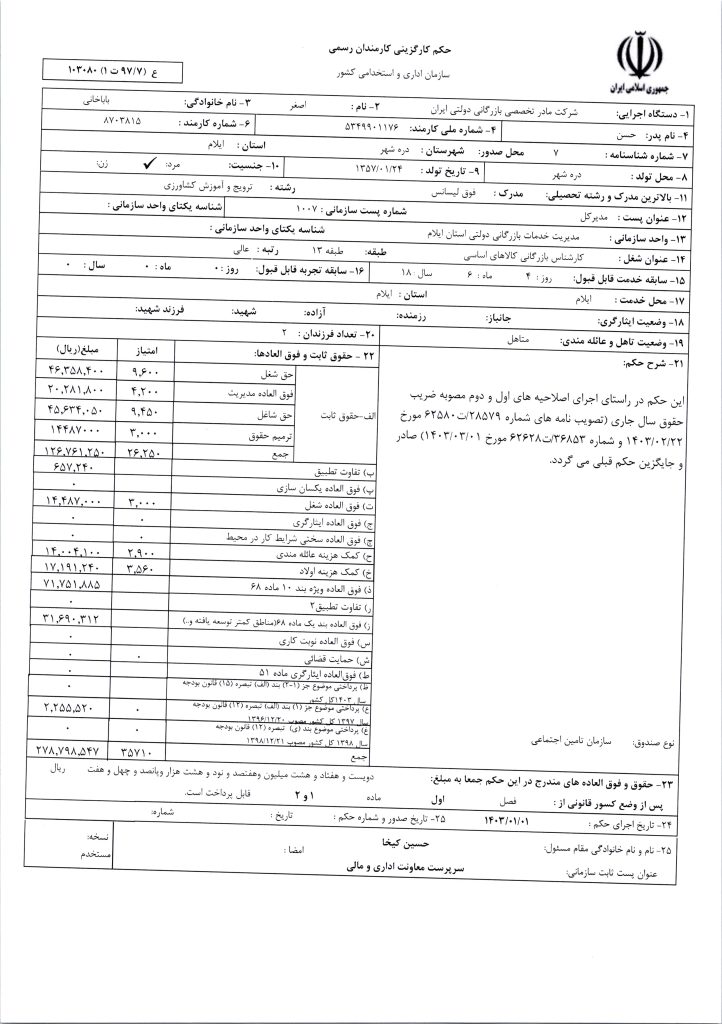 حکم کارگزینی کارمندان رسمی
سازمان اداری و استخدامی کشور
ع (۹۷/۷ ت ۱) ۱۰۳۰۸۰
جمهوری اسلامی ایران
۱- دستگاه اجرایی: شرکت مادر تخصصی بازرگانی دولتی ایران ۲- نام : اصغر ۳- نام خانوادگی: باباخانی
۴- نام پدر: حسن ۴- شماره ملی کارمند: ۵۳۴۹۹۰۱۱۷۶ ۶- شماره کارمند : ۸۷۰۳۸۱۵
۷- شماره شناسنامه : ۷ محل صدور: شهرستان : دره شهر استان : ایلام
۸- محل تولد : دره شهر ۹- تاریخ تولد : ۱۳۵۷/۰۱/۲۴ ۱۰- جنسیت: مرد: ✓ زن:
۱۱- بالاترین مدرک و رشته تحصیلی: مدرک : فوق لیسانس رشته : ترویج و آموزش کشاورزی
۱۲- عنوان پست : مدیرکل شماره پست سازمانی : ۱۰۰۷ شناسه یکتای واحد سازمانی :
۱۳- واحد سازمانی : مدیریت خدمات بازرگانی دولتی استان ایلام شناسه یکتای واحد سازمانی :
۱۴- عنوان شغل : کارشناس بازرگانی کالاهای اساسی طبقه: طبقه ۱۳ رتبه : عالی
۱۵- سابقه خدمت قابل قبول: روز : ۴ ماه : ۶ سال : ۱۸ ۱۶- سابقه تجربه قابل قبول: روز : ۰ ماه : ۰ سال : ۰
۱۷- محل خدمت : ایلام استان : ایلام
۱۸- وضعیت ایثارگری: جانباز: رزمنده: آزاده: شهید: فرزند شهید:
۱۹- وضعیت تاهل و عائله مندی: متاهل ۲۰- تعداد فرزندان : ۲
۲۱- شرح حکم:
این حکم در راستای اجرای اصلاحیه های اول و دوم مصوبه ضریب
حقوق سال جاری (تصویب نامه های شماره ۲۸۵۷۹/ت۶۲۵۸۰ مورخ
۱۴۰۳/۰۲/۲۲ و شماره ۳۶۸۵۳/ت۶۲۶۲۸ مورخ ۱۴۰۳/۰۳/۰۱) صادر
و جایگزین حکم قبلی می گردد.
نوع صندوق: سازمان تامین اجتماعی
۲۲- حقوق ثابت و فوق العادها: امتیاز مبلغ(ریال)
الف-حقوق ثابت
حق شغل ۹,۶۰۰ ۴۶,۳۵۸,۴۰۰
فوق العاده مدیریت ۴,۲۰۰ ۲۰,۲۸۱,۸۰۰
حق شاغل ۹,۴۵۰ ۴۵,۶۳۴,۰۵۰
ترمیم حقوق ۳,۰۰۰ ۱۴۴۸۷۰۰۰
جمع ۲۶,۲۵۰ ۱۲۶,۷۶۱,۲۵۰
ب) تفاوت تطبیق ۶۵۷,۲۴۰
پ) فوق العاده یکسان سازی ۰
ت) فوق العاده شغل ۳,۰۰۰ ۱۴,۴۸۷,۰۰۰
ج) فوق العاده ایثارگری ۰ ۰
چ) فوق العاده سختی شرایط کار در محیط ۰ ۰
ح) کمک هزینه عائله مندی ۲,۹۰۰ ۱۴,۰۰۴,۱۰۰
خ) کمک هزینه اولاد ۳,۵۶۰ ۱۷,۱۹۱,۲۴۰
ذ) فوق العاده ویژه بند ۱۰ ماده ۶۸ ۷۱,۷۵۱,۸۸۵
ر) تفاوت تطبیق۲ ۰
ز) فوق العاده بند یک ماده ۶۸(مناطق کمتر توسعه یافته و..) ۳۱,۶۹۰,۳۱۲
س) فوق العاده نوبت کاری ۰
ش) حمایت قضائی ۰ ۰
ط) فوق‌العاده ایثارگری ماده ۵۱ ۰
ظ) پرداختی موضوع جز (۱-۲) بند (الف) تبصره (۱۵) قانون بودجه ۰
سال ۱۴۰۳کل کشور
ع) پرداختی موضوع جز (۱) بند (الف) تبصره (۱۲) قانون بودجه ۰ ۲,۲۵۵,۵۲۰
سال ۱۳۹۷ کل کشور مصوب ۱۳۹۶/۱۲/۲۰
غ) پرداختی موضوع بند (ی) تبصره (۱۲) قانون بودجه ۰ ۰
سال ۱۳۹۸ کل کشور مصوب ۱۳۹۸/۱۲/۲۱
جمع ۳۵۷۱۰ ۲۷۸,۷۹۸,۵۴۷
۲۳- حقوق و فوق العاده های مندرج در این حکم جمعا به مبلغ: دویست و هفتاد و هشت میلیون وهفتصد و نود و هشت هزار وپانصد و چهل و هفت ریال
پس از وضع کسور قانونی از : فصل اول ماده ۱ و ۲ قابل پرداخت است.
۲۴- تاریخ اجرای حکم : ۱۴۰۳/۰۱/۰۱ ۲۵- تاریخ صدور و شماره حکم : تاریخ : شماره:
۲۵- نام و نام خانوادگی مقام مسئول: حسین کیخا امضا : نسخه:
عنوان پست ثابت سازمانی: سرپرست معاونت اداری و مالی مستخدم